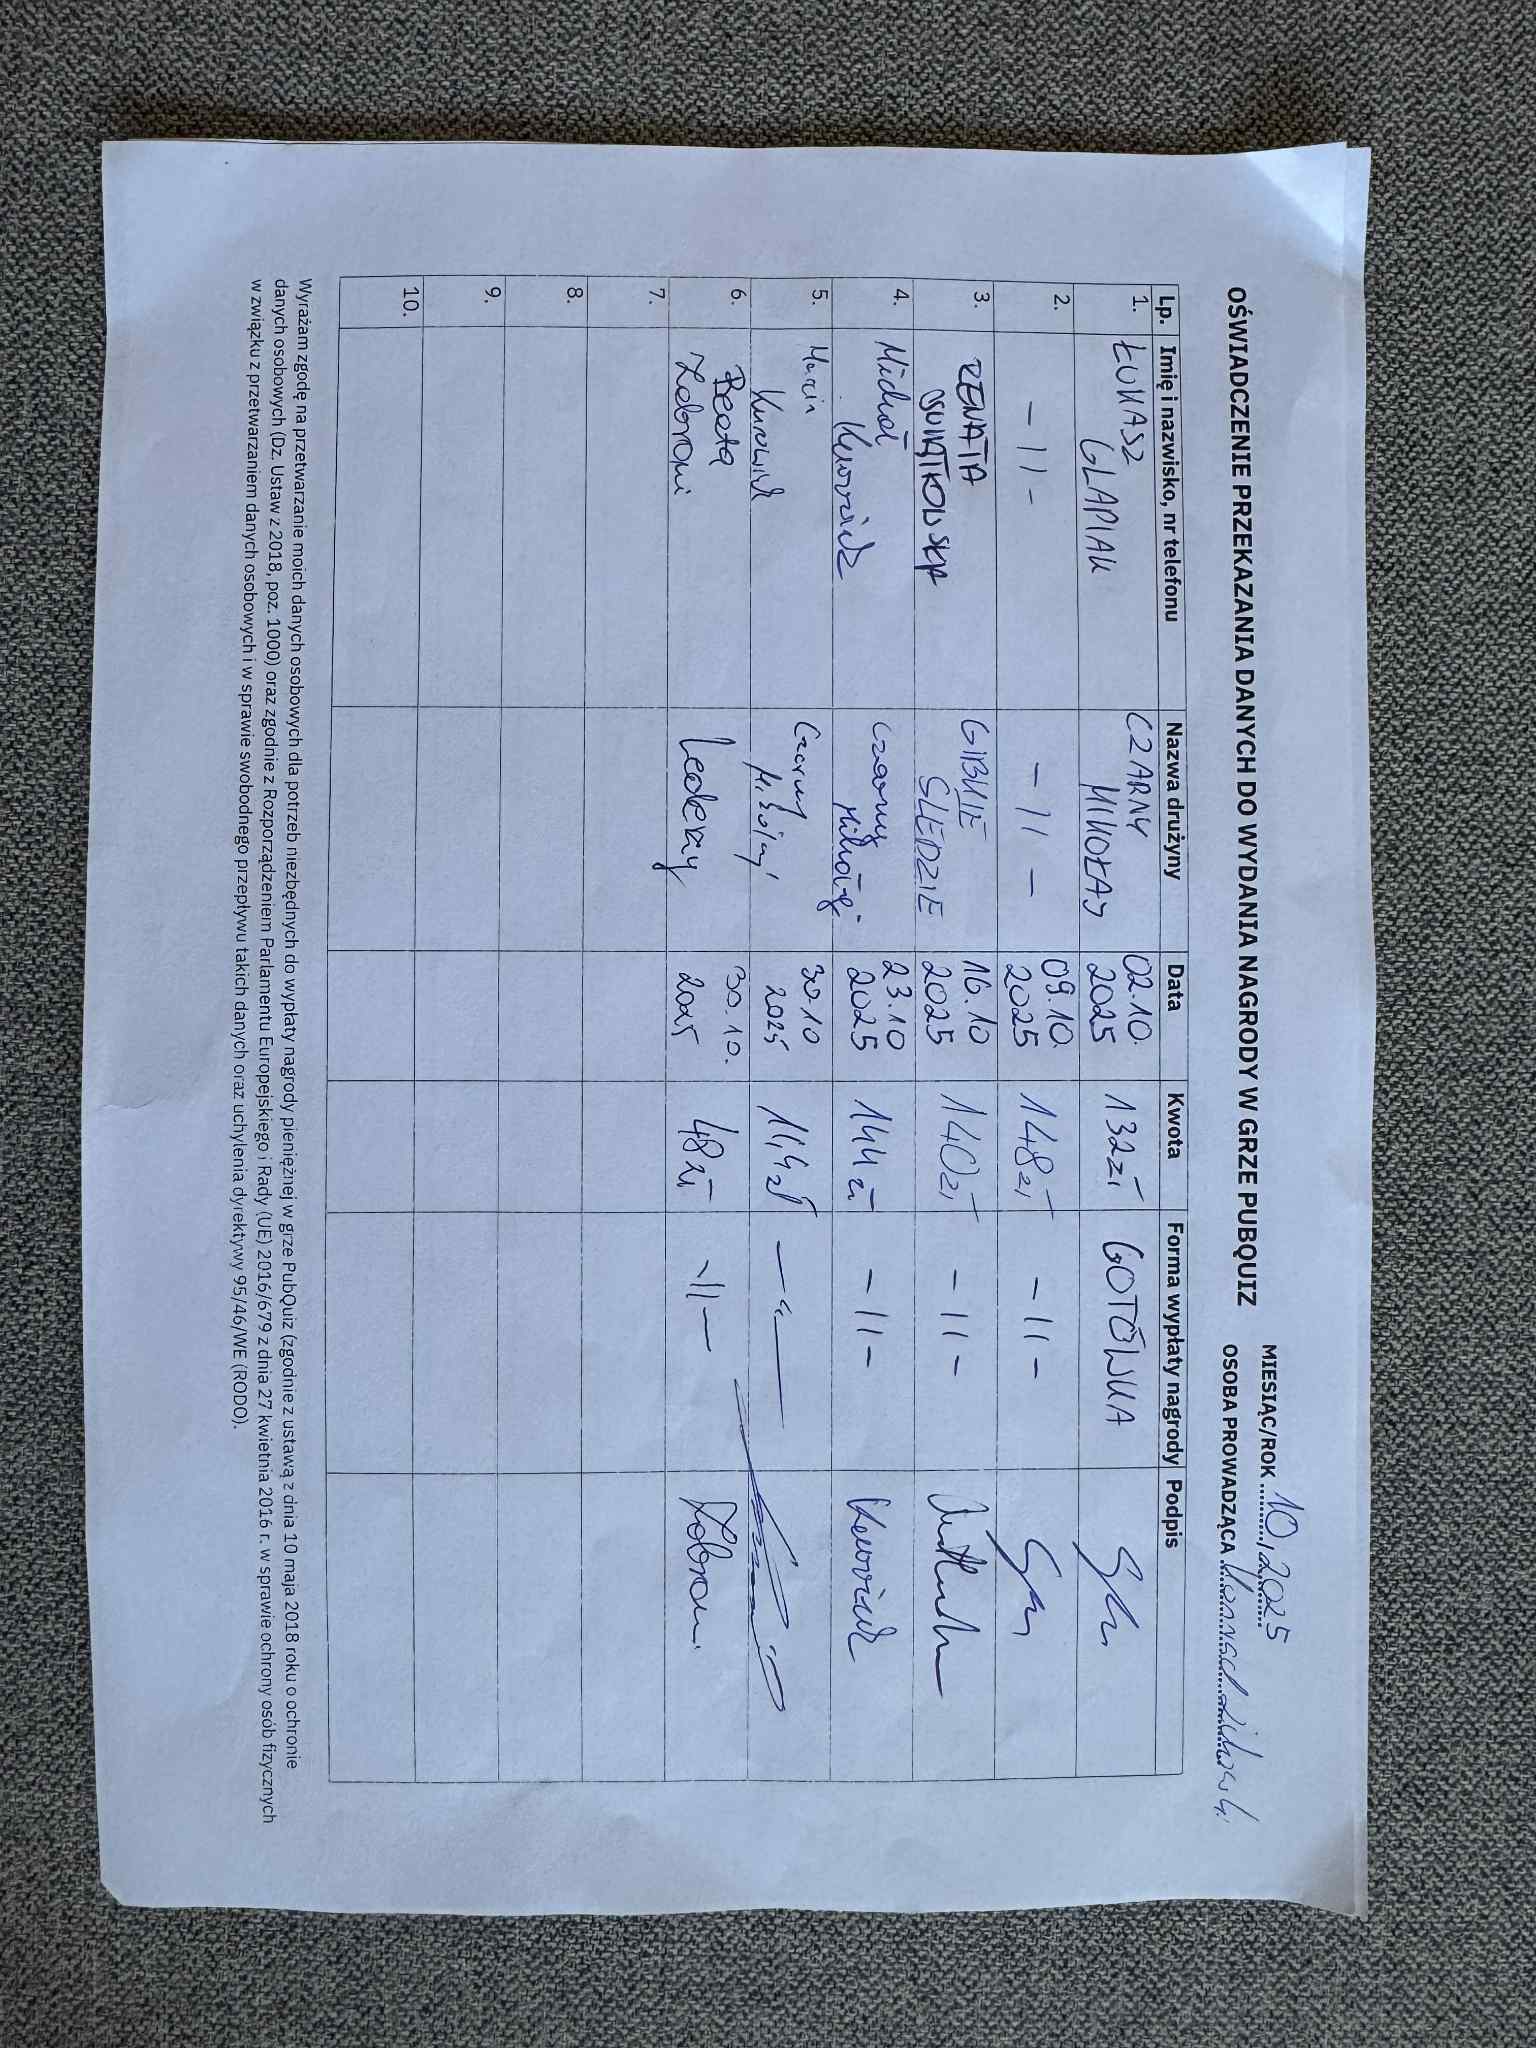 OŚWIADCZENIE PRZEKAZANIA DANYCH DO WYDANIA NAGRODY W GRZE PUBQUIZ
MIESIĄC/ROK 10.2025
OSOBA PROWADZĄCA Konrad
Lp. Imię i nazwisko, nr telefonu Nazwa drużyny Data Kwota Forma wypłaty nagrody Podpis
1. ŁUKASZ GLAPIAK CZARNY MIKOŁAJ 02.10. 2025 132zł GOTÓWKA
2. -11- -11- 09.10. 2025 148zł -11-
3. RENATA ŚWIĄTKOWSKA GIBKIE ŚLEDZIE 16.10 2025 140zł -11-
4. Michał Czarny Mikołaj 23.10 2025 144zł -11-
5. Marcin Czarny Mikołaj 30.10 2025 144zł -"-
6. Beata Zobroni Lederay 30.10. 2025 48zł -11-
7.
8.
9.
10.
Wyrażam zgodę na przetwarzanie moich danych osobowych dla potrzeb niezbędnych do wypłaty nagrody pieniężnej w grze PubQuiz (zgodnie z ustawą z dnia 10 maja 2018 roku o ochronie
danych osobowych (Dz. Ustaw z 2018, poz. 1000) oraz zgodnie z Rozporządzeniem Parlamentu Europejskiego i Rady (UE) 2016/679 z dnia 27 kwietnia 2016 r. w sprawie ochrony osób fizycznych
w związku z przetwarzaniem danych osobowych i w sprawie swobodnego przepływu takich danych oraz uchylenia dyrektywy 95/46/WE (RODO).